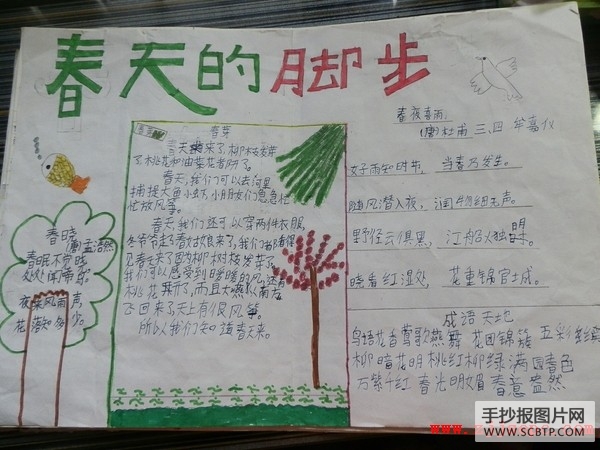 春天的脚步
春夜喜雨
(唐)杜甫 三、四
好雨知时节，当春乃发生。
随风潜入夜，润物细无声。
野径云俱黑，江船火独明
晓看红湿处，花重锦官士成。
成语天地
鸟语花香 莺歌燕舞 花团锦簇 五彩缤纷
柳暗花明 桃红柳绿 满园春色
万紫千红 春光明媚 春意盎然
春芽
春天来了，柳枝发芽
了桃花和油菜花都开了。
春天，我们可以去河里
捕捉大鱼小虾，小朋友们急急忙
忙放风筝。
春天，我们还可以穿两件衣服，
冬爷爷走了春姑娘来了，我们都看得
见春天来了因为柳树枝发芽了
我们可以感受到暖暖的风，还有
桃花开了，而且大燕从南方
飞回来了，天上有很风筝。
所以我们知道春天来。
春晓
(唐)孟浩然
春眠不觉晓
处处闻啼鸟。
夜来风雨声，
花落知多少。
手抄报图片网
WWW.SCBTP.COM